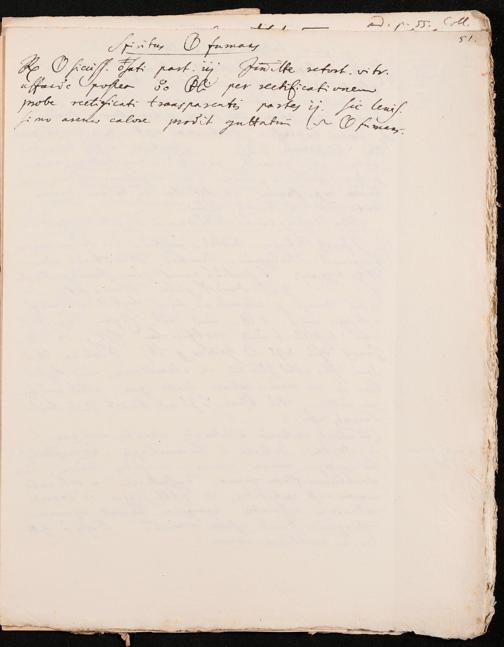 ad. p. 55. Coll.
51.
Spiritus 🜕 fumans
℞ 🜕 sicciss. part. iij retort. vitr.
affunde postea per rectificationem
probe rectificati transparentis partes ij. sic leniss.
simo arenae calore prodit guttatim 🜕 fumans.